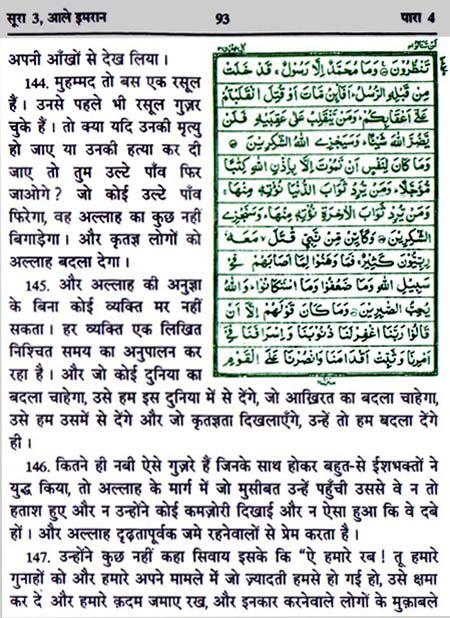 सूरा 3, आले इमरान 93 पारा 4
अपनी आँखों से देख लिया।
144. मुहम्मद तो बस एक रसूल
हैं। उनसे पहले भी रसूल गुज़र
चुके हैं। तो क्या यदि उनकी मृत्यु
हो जाए या उनकी हत्या कर दी
जाए तो तुम उल्टे पाँव फिर
जाओगे? जो कोई उल्टे पाँव
फिरेगा, वह अल्लाह का कुछ नहीं
बिगाड़ेगा। और कृतज्ञ लोगों को
अल्लाह बदला देगा।
145. और अल्लाह की अनुज्ञा
के बिना कोई व्यक्ति मर नहीं
सकता। हर व्यक्ति एक लिखित
निश्चित समय का अनुपालन कर
रहा है। और जो कोई दुनिया का
تَنْظُرُوْنَ وَمَا مُحَمَّدٌ اِلَّا رَسُوْلٌ، قَدْ خَلَتْ
مِنْ قَبْلِهِ الرُّسُلُ، اَفَا۟ئِنْ مَّاتَ اَوْ قُتِلَ انْقَلَبْتُمْ
عَلٰٓى اَعْقَابِكُمْ، وَمَنْ يَّنْقَلِبْ عَلٰى عَقِبَيْهِ فَلَنْ
يَّضُرَّ اللّٰهَ شَيْـًٔا، وَسَيَجْزِى اللّٰهُ الشّٰكِرِيْنَ
وَمَا كَانَ لِنَفْسٍ اَنْ تَمُوْتَ اِلَّا بِاِذْنِ اللّٰهِ كِتٰبًا
مُّؤَجَّلًا، وَمَنْ يُّرِدْ ثَوَابَ الدُّنْيَا نُؤْتِهٖ مِنْهَا،
وَمَنْ يُّرِدْ ثَوَابَ الْاٰخِرَةِ نُؤْتِهٖ مِنْهَا، وَسَنَجْزِى
الشّٰكِرِيْنَ وَكَاَيِّنْ مِّنْ نَّبِىٍّ قٰتَلَ، مَعَهٗ
رِبِّيُّوْنَ كَثِيْرٌ، فَمَا وَهَنُوْا لِمَآ اَصَابَهُمْ فِىْ
سَبِيْلِ اللّٰهِ وَمَا ضَعُفُوْا وَمَا اسْتَكَانُوْا، وَاللّٰهُ
يُحِبُّ الصّٰبِرِيْنَ وَمَا كَانَ قَوْلَهُمْ اِلَّآ اَنْ
قَالُوْا رَبَّنَا اغْفِرْ لَنَا ذُنُوْبَنَا وَاِسْرَافَنَا فِىْٓ
اَمْرِنَا وَثَبِّتْ اَقْدَامَنَا وَانْصُرْنَا عَلَى الْقَوْمِ
बदला चाहेगा, उसे हम इस दुनिया में से देंगे, जो आख़िरत का बदला चाहेगा,
उसे हम उसमें से देंगे और जो कृतज्ञता दिखलाएँगे, उन्हें तो हम बदला देंगे
ही।
146. कितने ही नबी ऐसे गुज़रे हैं जिनके साथ होकर बहुत-से ईशभक्तों ने
युद्ध किया, तो अल्लाह के मार्ग में जो मुसीबत उन्हें पहुँची उससे वे न तो
हताश हुए और न उन्होंने कोई कमज़ोरी दिखाई और न ऐसा हुआ कि वे दबे
हों। और अल्लाह दृढ़तापूर्वक जमे रहनेवालों से प्रेम करता है।
147. उन्होंने कुछ नहीं कहा सिवाय इसके कि “ऐ हमारे रब! तू हमारे
गुनाहों को और हमारे अपने मामले में जो ज़्यादती हमसे हो गई हो, उसे क्षमा
कर दे और हमारे क़दम जमाए रख, और इनकार करनेवाले लोगों के मुक़ाबले